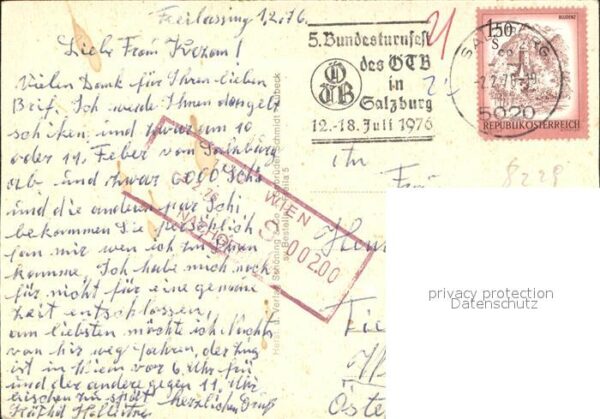 Freilassing 1.2.76.
Liebe Frau Krezam!
Vielen Dank für Ihren lieben
Brif. Ich werde Ihnen das gelt
schiken und zwar am 10
oder 11. Feber von Salzburg
ab und zwar 6000 Schi
und die anderen par Schi
bekommen Sie persöhlich
fan mir wen ich zu Ihnen
komme. Ich habe mich noch
für nicht für eine genaue
Zeit entschlossen,
am liebsten möcht ich Nachts
von hir weg fahren, der zug
ist in Wien vor 6 Uhr früh
und der andere gegen 11. Uhr
bischen zu spät herzlichen Gruß
5. Bundesturnfest
des ÖTB
in
Salzburg
12.-18. Juli 1976
ÖTB
SALZBURG
5020
BLUDENZ
1.50
S
REPUBLIK ÖSTERREICH
8229
WIEN
Schöning & Co
Schmidt Lübeck
Frau
privacy protection
Datenschutz
Wien